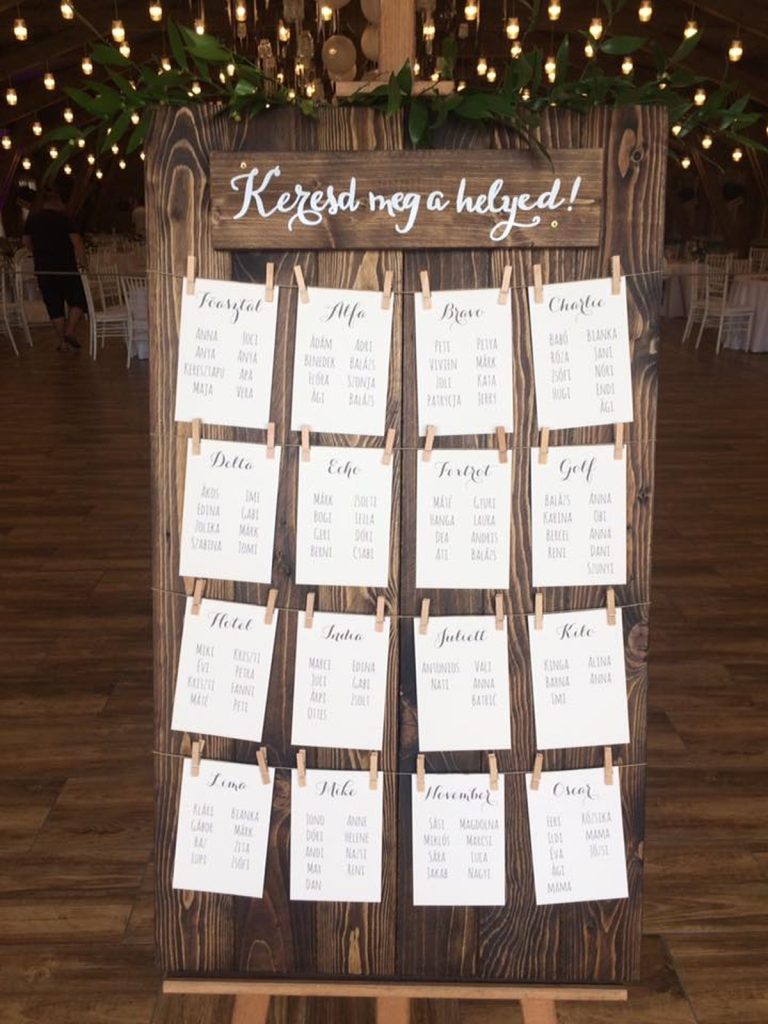 Keresd meg a helyed!
Főasztal
ANNA JOCI
ANYA ANYA
KERESZTAPU APA
MAJA VERA
Alfa
ÁDÁM ADRI
BENEDEK BALÁZS
FLÓRA SZONJA
ÁGI BALÁZS
Bravo
PETI PETYA
VIVIEN MÁRK
JOLI KATA
PATRYCJA JERRY
Charlie
BABÓ BIANKA
RÓZA JANI
ZSÓFI NÓRI
HUGI ENDI
ÁGI
Delta
ÁKOS IMI
EDINA GABI
JOLIKA MÁRK
SZABINA TOMI
Echo
MÁRK ZSOLTI
BOGI LEILA
GERI DÓRI
BERNI CSABI
Foxtrot
MÁTÉ GYURI
HANGA LAURA
DEA ANDRIS
ATI BALÁZS
Golf
BALÁZS ANNA
KARINA OBI
BERCEL ANNA
RENI DANI
SZUNYI
Hotel
MIKI KRISZTI
ÉVI PETRA
KRISZTI FANNI
MÁTÉ PETE
India
MARCI EDINA
JUCI GABI
ÁRPI ZSOLT
OTTES
Juliett
ANTONIUS VALI
NATI ANNA
PATRIC
Kilo
KINGA ALINA
BARNA ANNA
IMI
Lima
KLÁRI BLANKA
GÁBOR MÁRK
BAZ ZITA
LUPI ZSÓFI
Mike
JONO ANNE
DÓRI HELENE
ANDI NAZSI
MAX RENI
DAN
November
SÁSI MAGDOLNA
MIKLÓS MARCSI
SÁRA LUCA
JAKAB NAGYI
Oscar
FERI RÓZSIKA
ILDI MAMA
ÉVA JÓZSI
ÁGI
MAMA